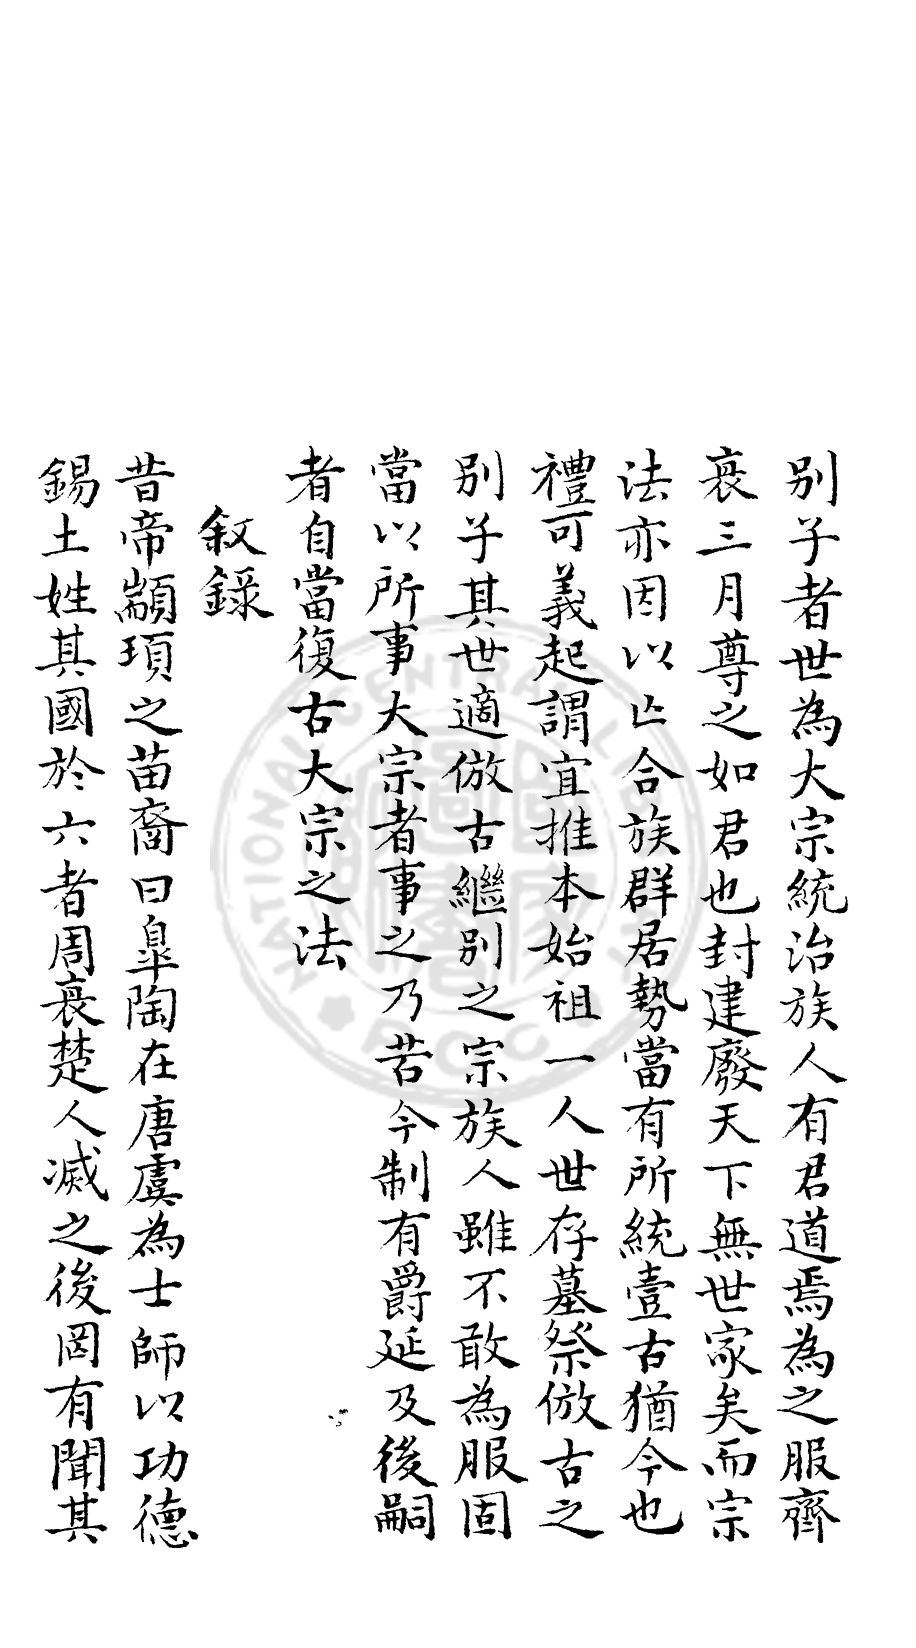 别子者世為大宗統治族人有君道焉為之服齊
衰三月尊之如君也封建廢天下無世家矣而宗
法亦因以亡合族群居勢當有所統壹古猶今也
禮可義起謂宜推本始祖一人世存墓祭倣古之
别子其世適倣古繼别之宗族人雖不敢為服固
當以所事大宗者事之乃若今制有爵延及後嗣
者自當復古大宗之法
敘錄
昔帝顓頊之苗裔曰臯陶在唐虞為士師以功德
錫土姓其國於六者周衰楚人滅之後罔有聞其
NATIONAL CENTRAL LIBRARY R.O.C.